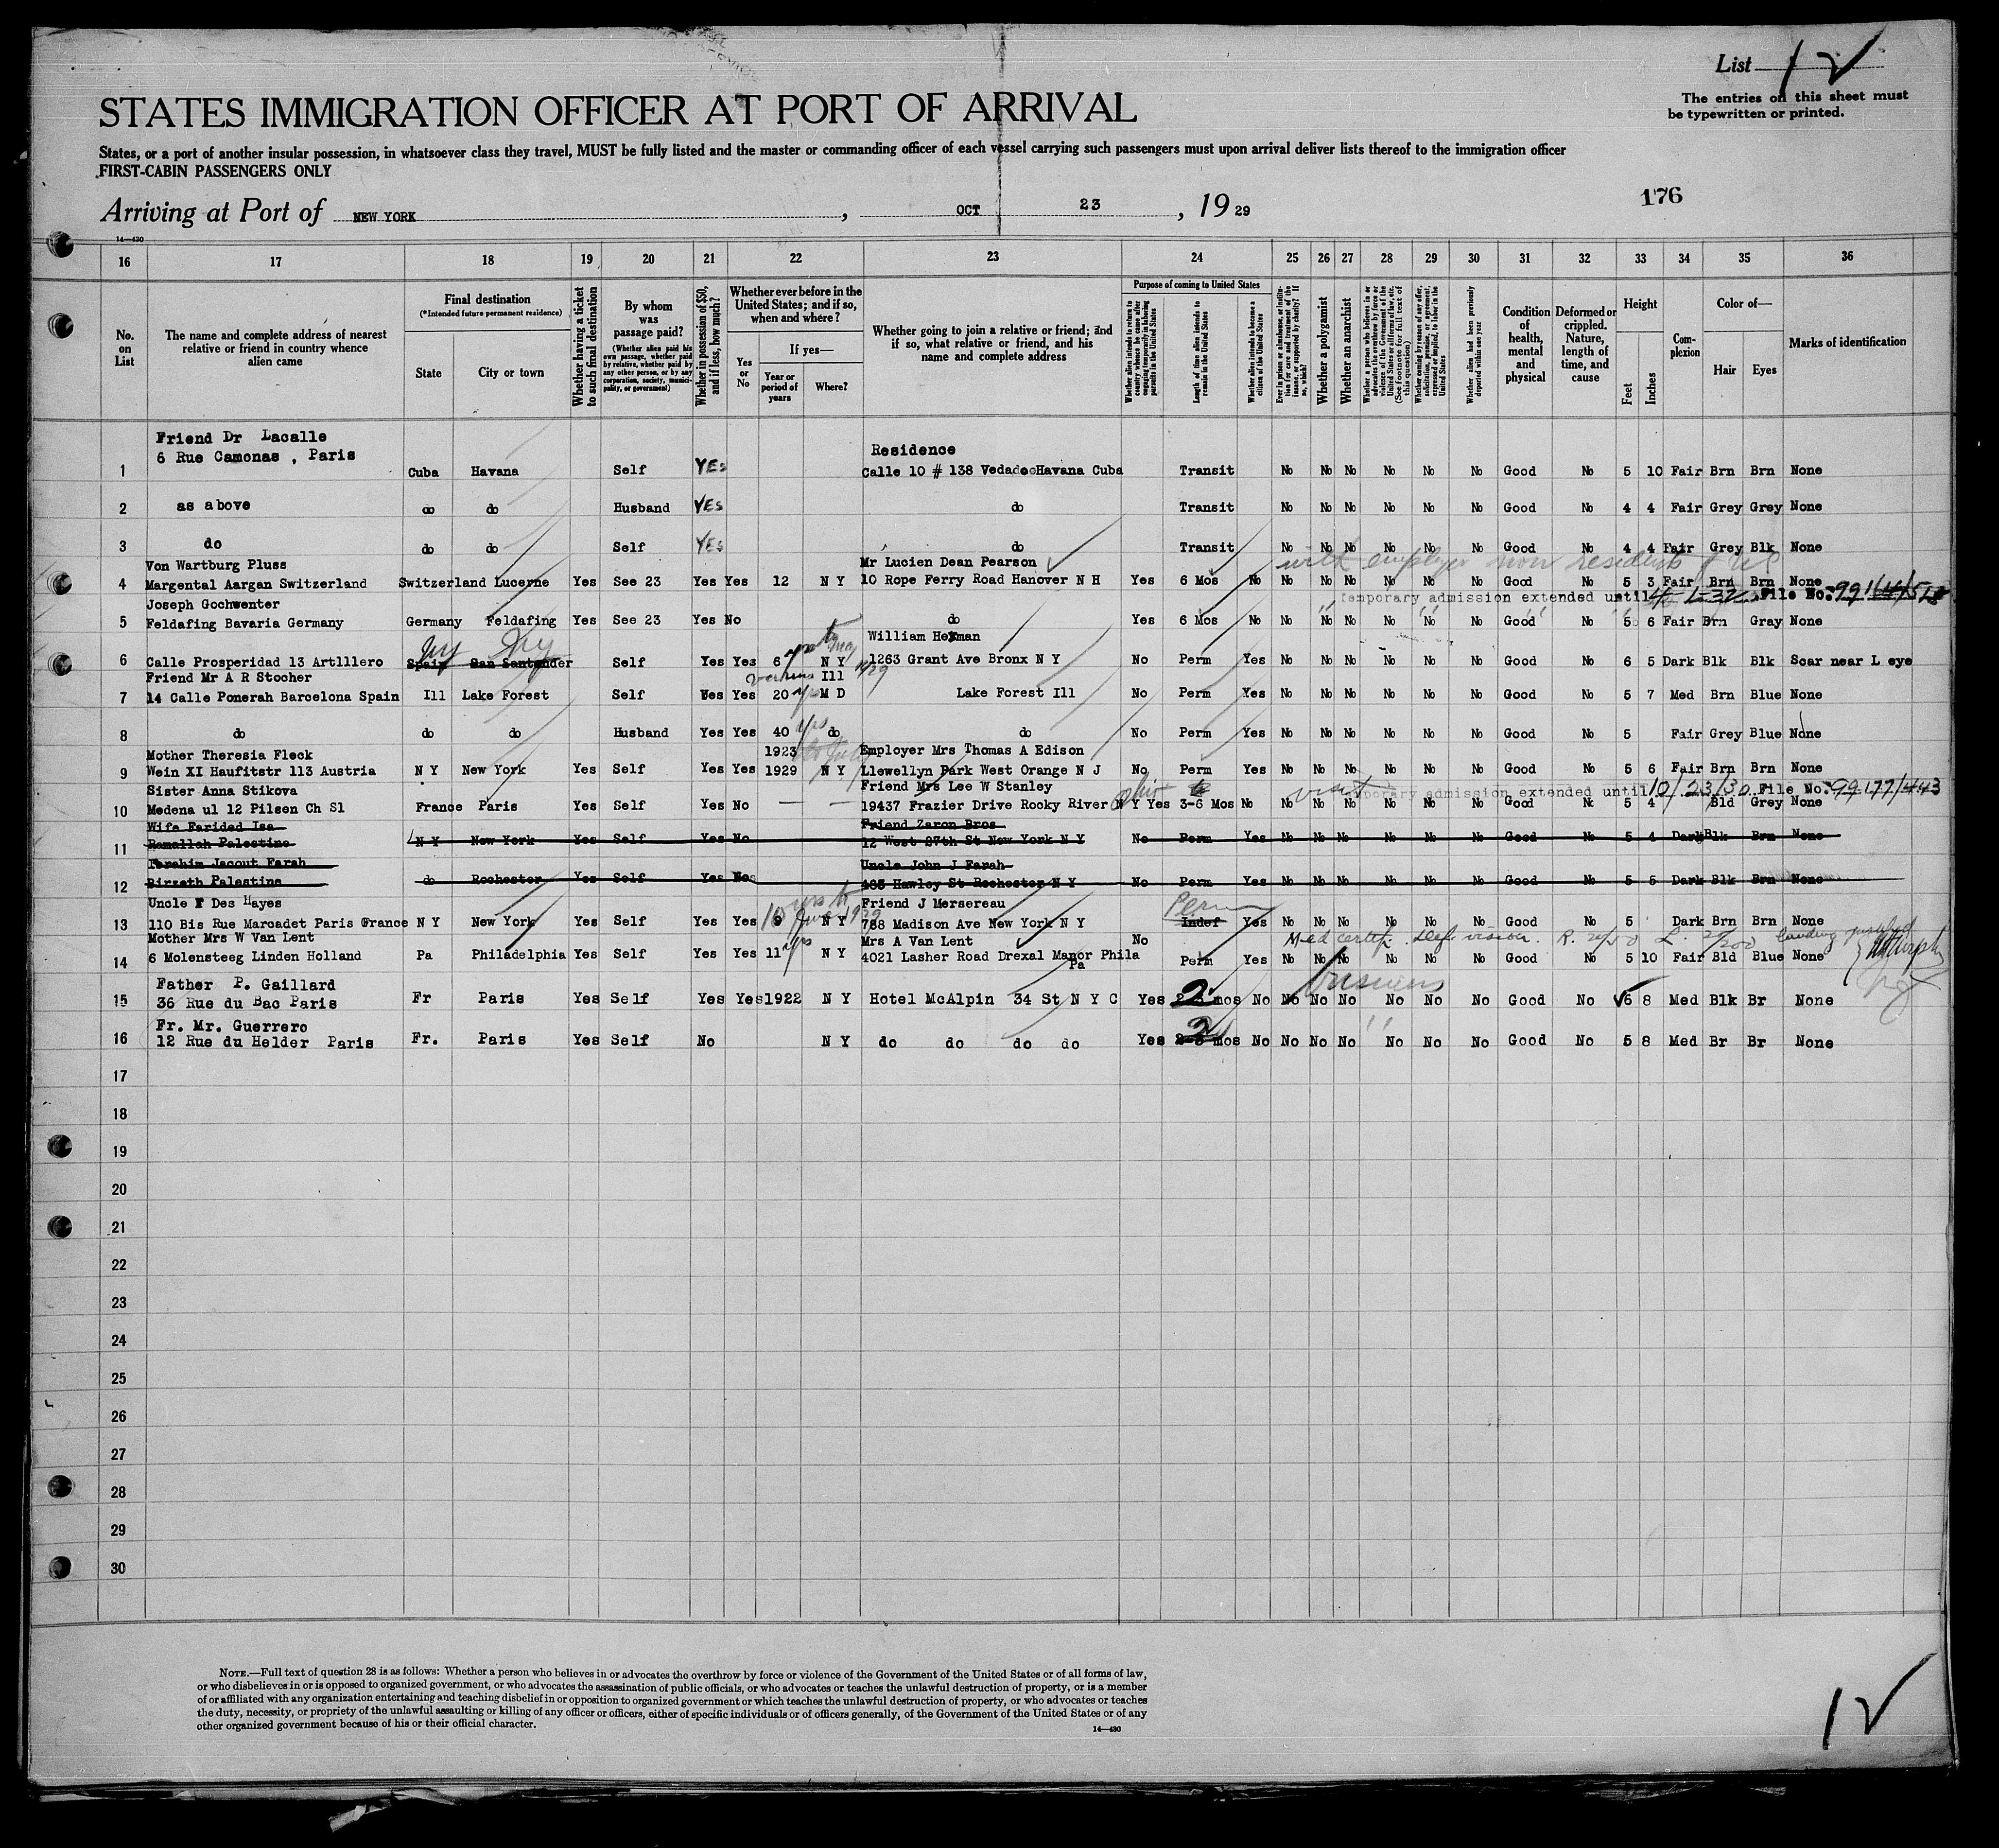 List 12
The entries on this sheet must
be typewritten or printed.
STATES IMMIGRATION OFFICER AT PORT OF ARRIVAL
States, or a port of another insular possession, in whatsoever class they travel, MUST be fully listed and the master or commanding officer of each vessel carrying such passengers must upon arrival deliver lists thereof to the immigration officer
FIRST-CABIN PASSENGERS ONLY
176
Arriving at Port of NEW YORK, OCT 23, 19 29
14—430
16 17 18 19 20 21 22 23 24 25 26 27 28 29 30 31 32 33 34 35 36
No. on List
The name and complete address of nearest relative or friend in country whence alien came
Final destination
(*Intended future permanent residence)
State City or town
Whether having a ticket to such final destination
By whom was passage paid?
(Whether alien paid his own passage, whether paid by relative, whether paid by any other person, or by any corporation, society, municipality, or government)
Whether in possession of $50, and if less, how much?
Whether ever before in the United States; and if so, when and where?
Yes or No
If yes—
Year or period of years
Where?
Whether going to join a relative or friend; and if so, what relative or friend, and his name and complete address
Purpose of coming to United States
Whether alien intends to return to country whence he came after engaging temporarily in laboring pursuits in the United States
Length of time alien intends to remain in the United States
Whether alien intends to become a citizen of the United States
Ever in prison or almshouse, or institution for care and treatment of the insane, or supported by charity? If so, which?
Whether a polygamist
Whether an anarchist
Whether a person who believes in or advocates the overthrow by force or violence of the Government of the United States or all forms of law, etc. (See footnote for full text of this question)
Whether coming by reason of any offer, solicitation, promise, or agreement, expressed or implied, to labor in the United States
Whether alien had been previously deported within one year
Condition of health, mental and physical
Deformed or crippled. Nature, length of time, and cause
Height
Feet Inches
Complexion
Color of—
Hair Eyes
Marks of identification
Friend Dr Lacalle
6 Rue Camonas , Paris Residence
1 Cuba Havana Self YES Calle 10 # 138 Vedado Havana Cuba Transit No No No No No No Good No 5 10 Fair Brn Brn None
2 as above do do Husband YES do Transit No No No No No No Good No 4 4 Fair Grey Grey None
3 do do do Self YES do Transit No No No No No No Good No 4 4 Fair Grey Blk None
Von Wartburg Pluss Mr Lucien Dean Pearson with employer non residents of US
4 Margental Aargan Switzerland Switzerland Lucerne Yes See 23 Yes Yes 12 N Y 10 Rope Ferry Road Hanover N H Yes 6 Mos No No No No No No No Good No 5 3 Fair Brn Brn None
Joseph Gochwenter Temporary admission extended until File No.
5 Feldafing Bavaria Germany Germany Feldafing Yes See 23 Yes No do Yes 6 Mos No No No No No No No Good No 5 6 Fair Brn Gray None
NY NY William Herman
6 Calle Prosperidad 13 Artlllero Spain San Santander Self Yes Yes 6 N Y 1263 Grant Ave Bronx N Y No Perm Yes No No No No No No Good No 6 5 Dark Blk Blk Scar near L eye
Friend Mr A R Stocher various Ill
7 14 Calle Pomerah Barcelona Spain Ill Lake Forest Self Yes Yes 20 M D Lake Forest Ill No Perm Yes No No No No No No Good No 5 7 Med Brn Blue None
8 do do do Husband Yes Yes 40 yrs do do No Perm Yes No No No No No No Good No 5 Fair Grey Blue None
Mother Theresia Fleck 1923 Employer Mrs Thomas A Edison
9 Wein XI Haufitstr 113 Austria N Y New York Yes Self Yes Yes 1929 N Y Llewellyn Park West Orange N J No Perm Yes No No No No No No Good No 5 6 Fair Brn Brn None
Sister Anna Stikova Friend Mrs Lee W Stanley Ohio visit Temporary admission extended until 10/23/30 File No. 99177/443
10 Medena ul 12 Pilsen Ch Sl France Paris Yes Self Yes No — — 19437 Frazier Drive Rocky River N Y Yes 3-6 Mos No No No No No No No Good No 5 4 Bld Grey None
Wife Farided Isa Friend Zaron Bros
11 Ramallah Palestine N Y New York Yes Self Yes No 12 West 27th St New York N Y No Perm Yes No No No No No No Good No 5 4 Dark Blk Brn None
Ibrahim Jacout Farah Uncle John J Farah
12 Birzeth Palestine do Rochester Yes Self Yes No 485 Hawley St Rochester N Y No Perm Yes No No No No No No Good No 5 5 Dark Blk Brn None
Uncle F Des Hayes Friend J Mersereau Perm
13 110 Bis Rue Marcadet Paris France N Y New York Yes Self Yes Yes 9 N Y 788 Madison Ave New York N Y Indef Yes No No No No No No Good No 5 Dark Brn Brn None
Mother Mrs W Van Lent Mrs A Van Lent No Med certif. Def vision. R. 20/50 L. 20/200
14 6 Molensteeg Linden Holland Pa Philadelphia Yes Self Yes Yes 11 yrs N Y 4021 Lasher Road Drexal Manor Phila Pa Perm Yes No No No No No No Good No 5 10 Fair Bld Blue None
Father P. Gaillard Business
15 36 Rue du Bac Paris Fr Paris Yes Self Yes Yes 1922 N Y Hotel McAlpin 34 St N Y C Yes 2 mos No No No No No No No Good No 6 8 Med Blk Br None
Fr. Mr. Guerrero "
16 12 Rue du Helder Paris Fr. Paris Yes Self No N Y do do do do Yes 2 mos No No No No No No No Good No 5 8 Med Br Br None
17
18
19
20
21
22
23
24
25
26
27
28
29
30
NOTE.—Full text of question 28 is as follows: Whether a person who believes in or advocates the overthrow by force or violence of the Government of the United States or of all forms of law,
or who disbelieves in or is opposed to organized government, or who advocates the assassination of public officials, or who advocates or teaches the unlawful destruction of property, or is a member
of or affiliated with any organization entertaining and teaching disbelief in or opposition to organized government or which teaches the unlawful destruction of property, or who advocates or teaches
the duty, necessity, or propriety of the unlawful assaulting or killing of any officer or officers, either of specific individuals or of officers generally, of the Government of the United States or of any
other organized government because of his or their official character.
14—430
12